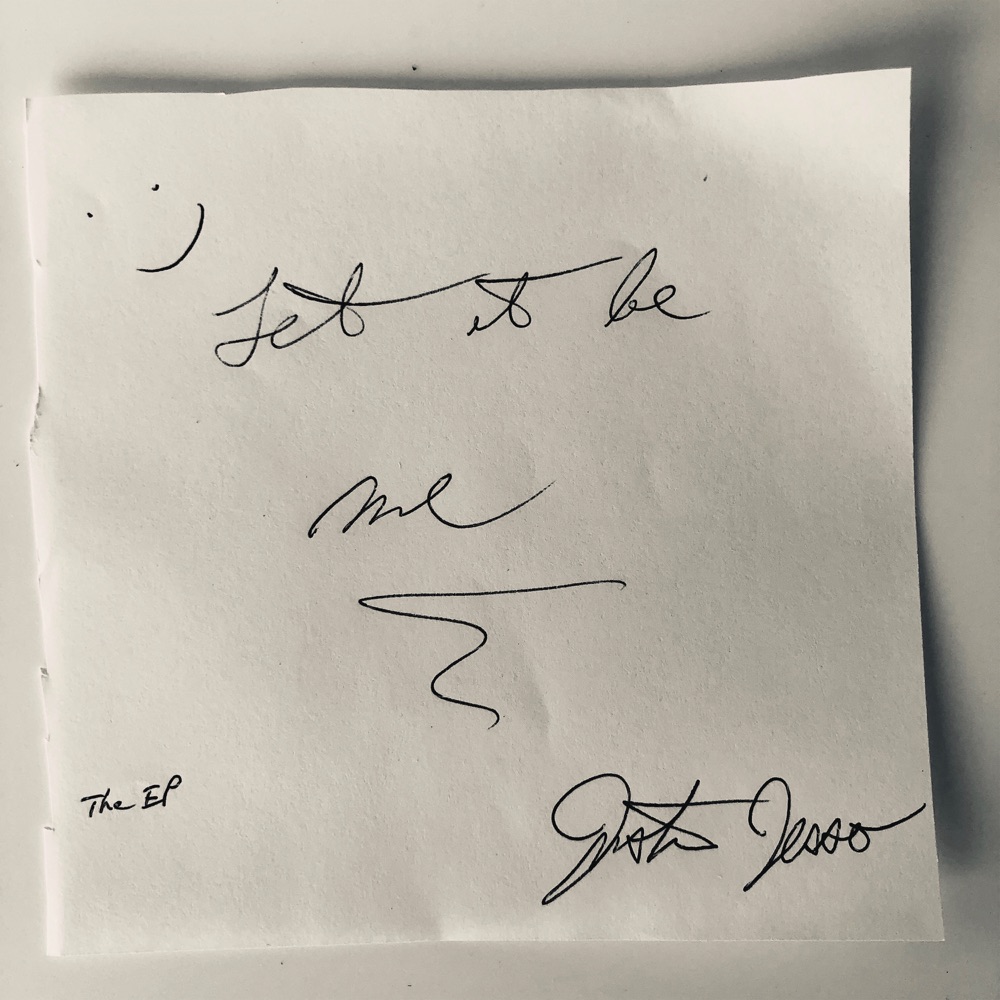 :)
Let it be
me
The EP
Justin Jesso